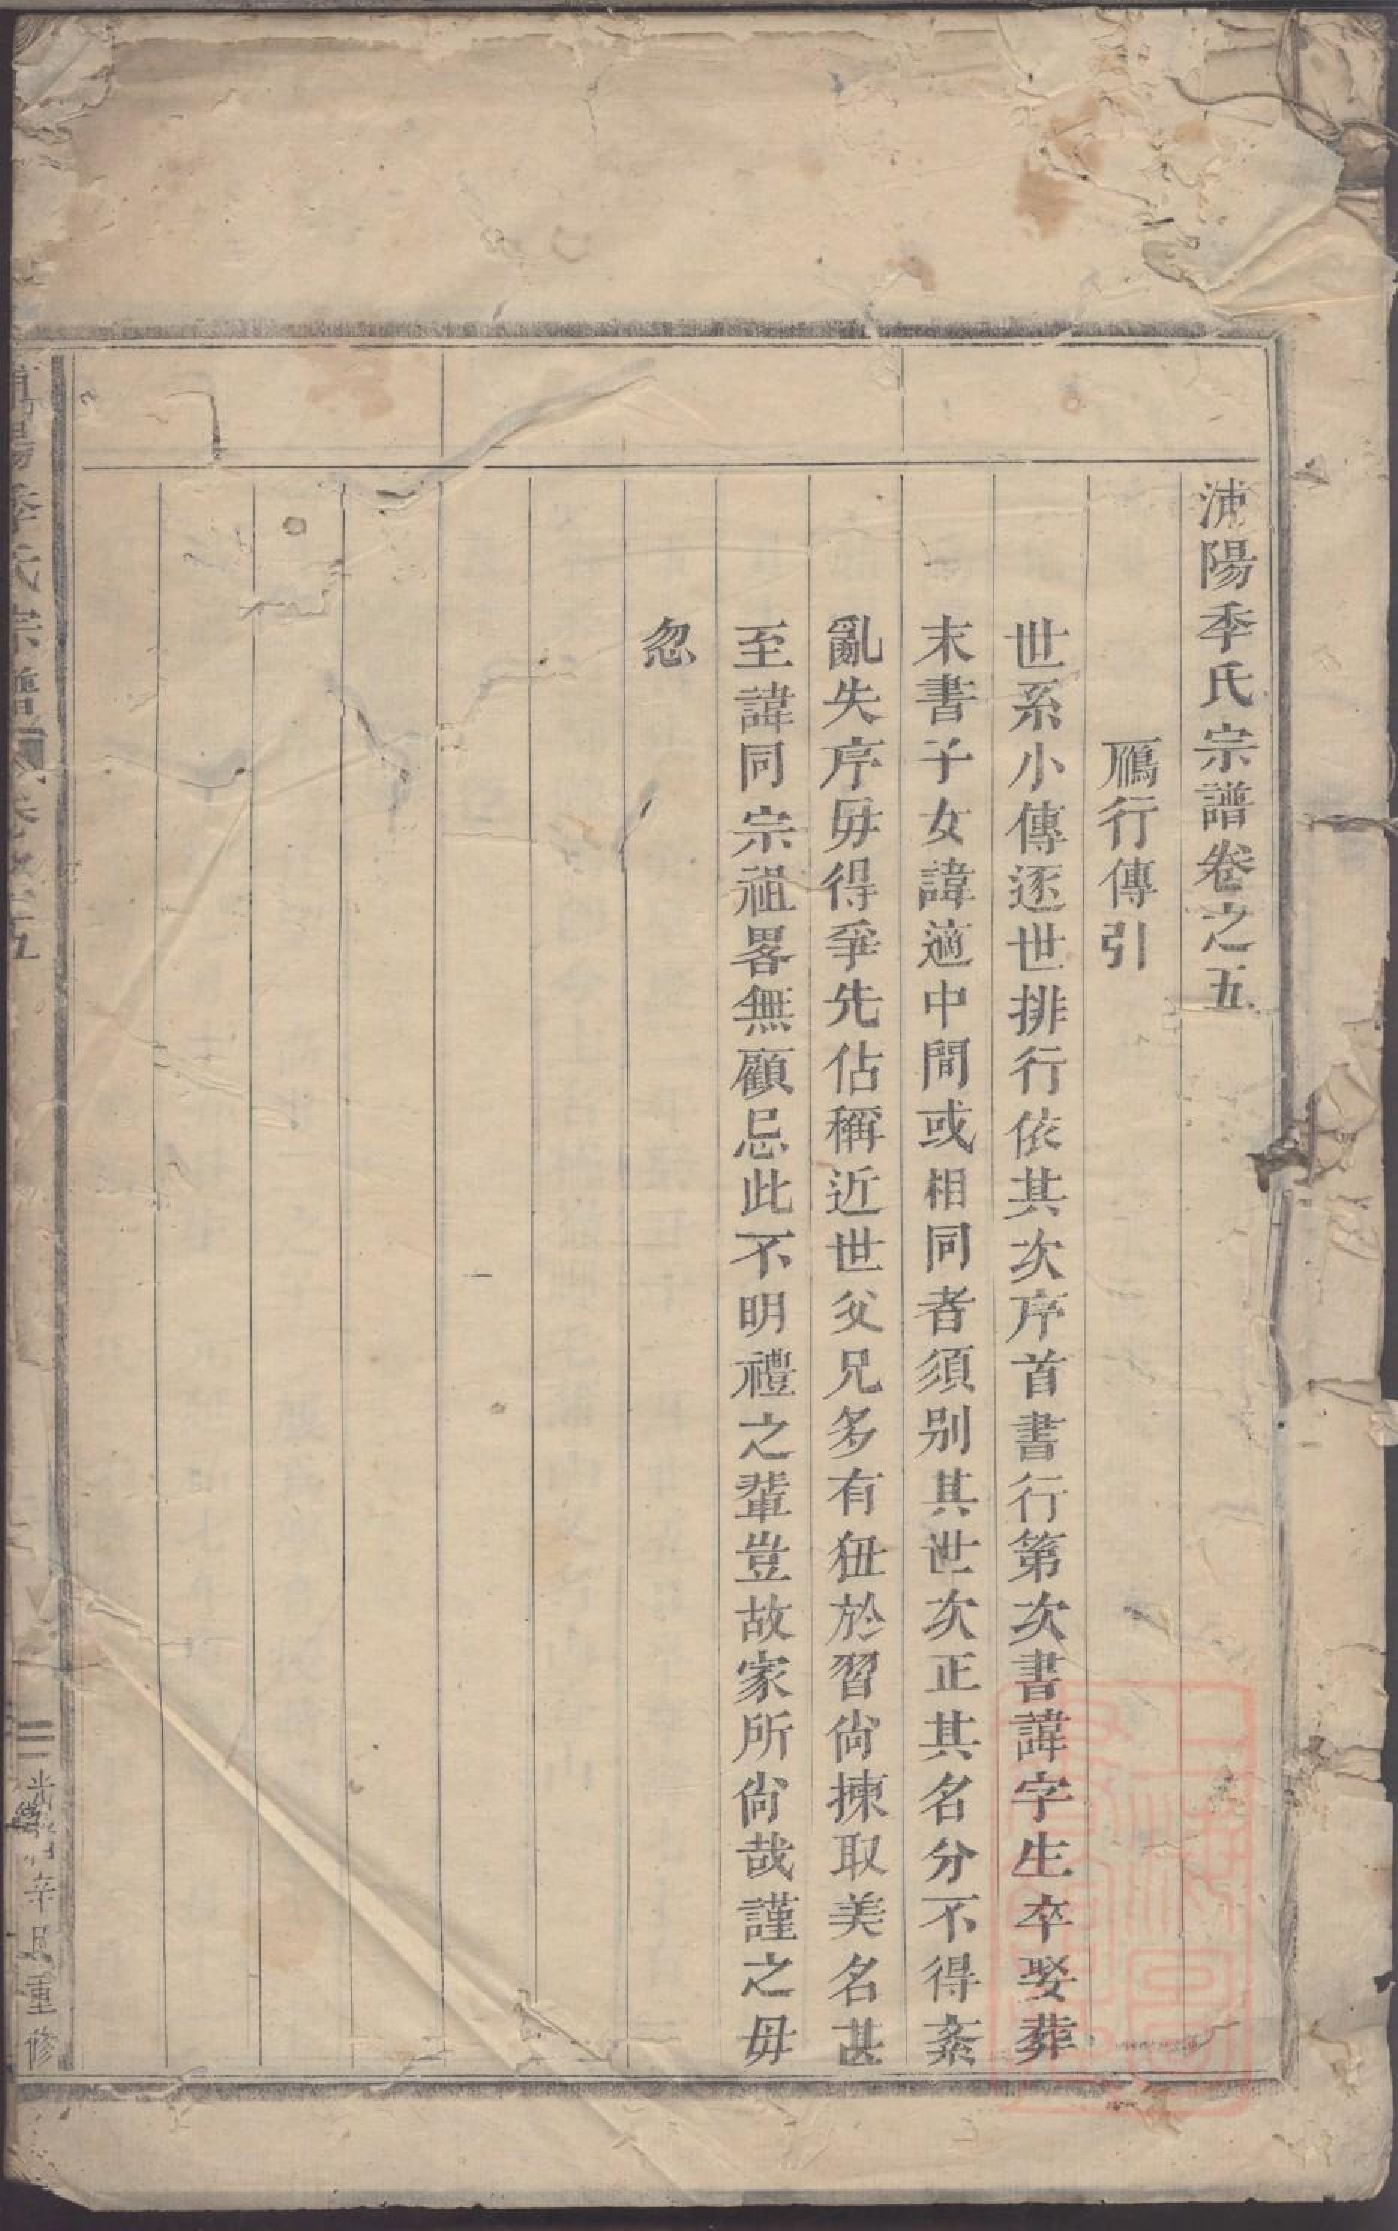 浦陽季氏宗譜卷之五
鴈行傳引
世系小傳逐世排行依其次序首書行第次書諱字生卒娶葬
末書子女諱適中間或相同者須别其世次正其名分不得紊
亂失序毋得爭先佔稱近世父兄多有狃於習尙揀取美名甚
至諱同宗祖畧無顧忌此不明禮之輩豈故家所尙哉謹之毋
忽
陽季氏宗譜 卷之五 光緒辛丑重修